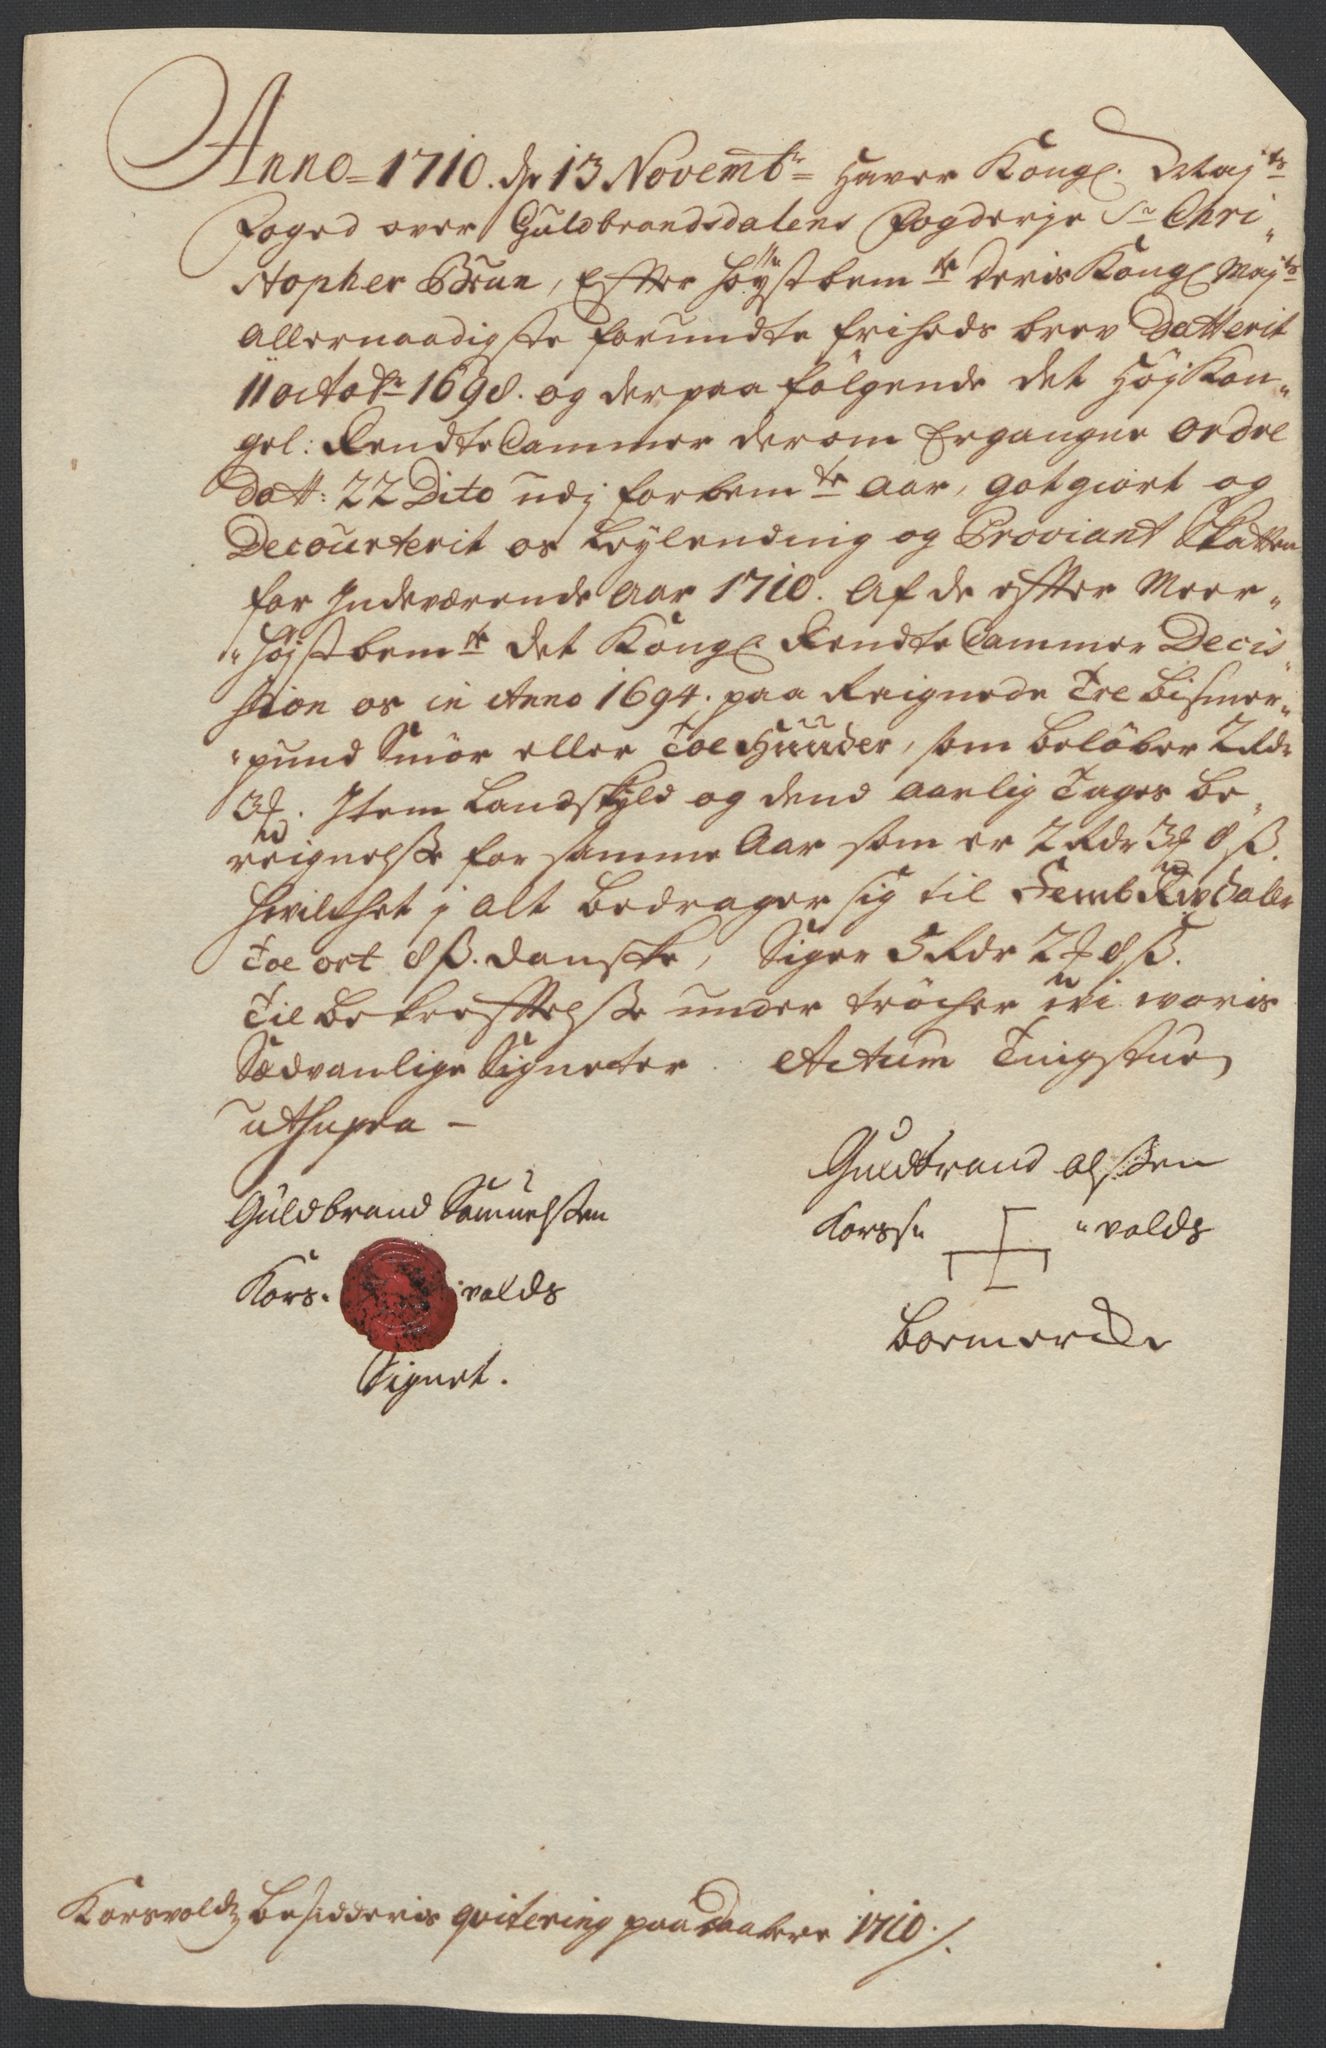 Anno 1710. dn 13 Novembr haver Kongl. Majts
Foged over Guldbrandsdalens Fogderje Sr Chri„
stopher Brun, Efter Høystbemte Deris Kongl Majts
Allernaadigste forundte friheds brev Datterit
11 octobr 1698. og derpaa følgende det Høj Kon„
gel: RendteCammer derom Ergangne ordre
datt: 22 Dito udj forbemte aar, gotgiort og
Decourterit os Leylending og Proviant Skatten
for Indeværende aar 1710. Af de efter Meer„
„høystbemte det Kongl. RendteCammer Decis„
sion os in Anno 1694. paa Reignede Tre bismer„
„pund Smør eller Toe Huuder, som beløber 2 Rdr
3 ort. Item Landskyld og dend aarlig Tages be„
reignelsse for samme Aar som er 2 Rdr 3 ort 8 ß.
hvilchet j alt bedrager sig til Femb Rixdaler
Toe ort 8 ß. danske, Siger 5 Rdr 2 ort 8 ß.
Til bekreftelsse under trøcher wi woris
Sædvanlige Signeter. Actum Tingstuen
ut supra –
Guldbrand Samuelssen
Kors„ „volds
Signet.
Guldbrand olssen
Korss„ „volds
boemerche
Korsvolds besidderis qvitering paa 1710./.